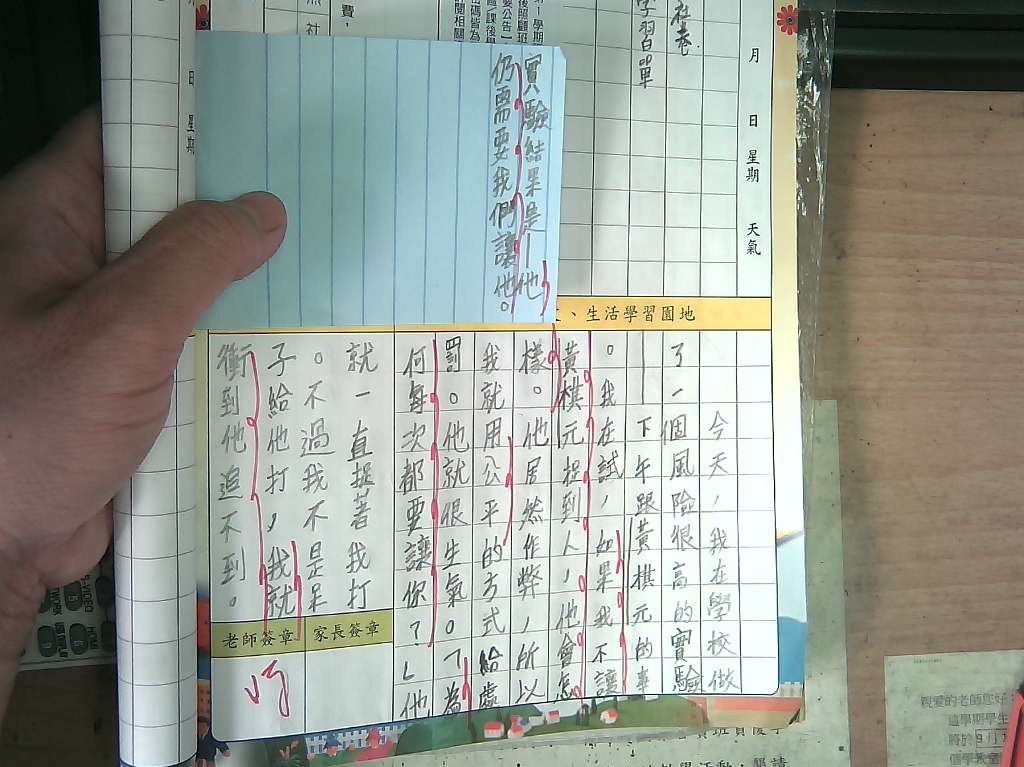 月 日 星期 天氣
學習單
費，
日 星期
實驗結果是—他
仍需要我們讓他。
、生活學習園地
今天，我在學校做
了一個風險很高的實驗
——下午跟黃棋元的事
。我在試，如果我不讓
黃棋元捉到人，他會怎
樣。他居然作弊，所以
我就用公平的方式給處
罰。他就很生氣。「為
何每次都要讓你？」他
就一直捉著我打
。不過我不是呆
子給他打，我就
衝到他追不到。
家長簽章
老師簽章
親愛的老師您好：
這學期學生
將於